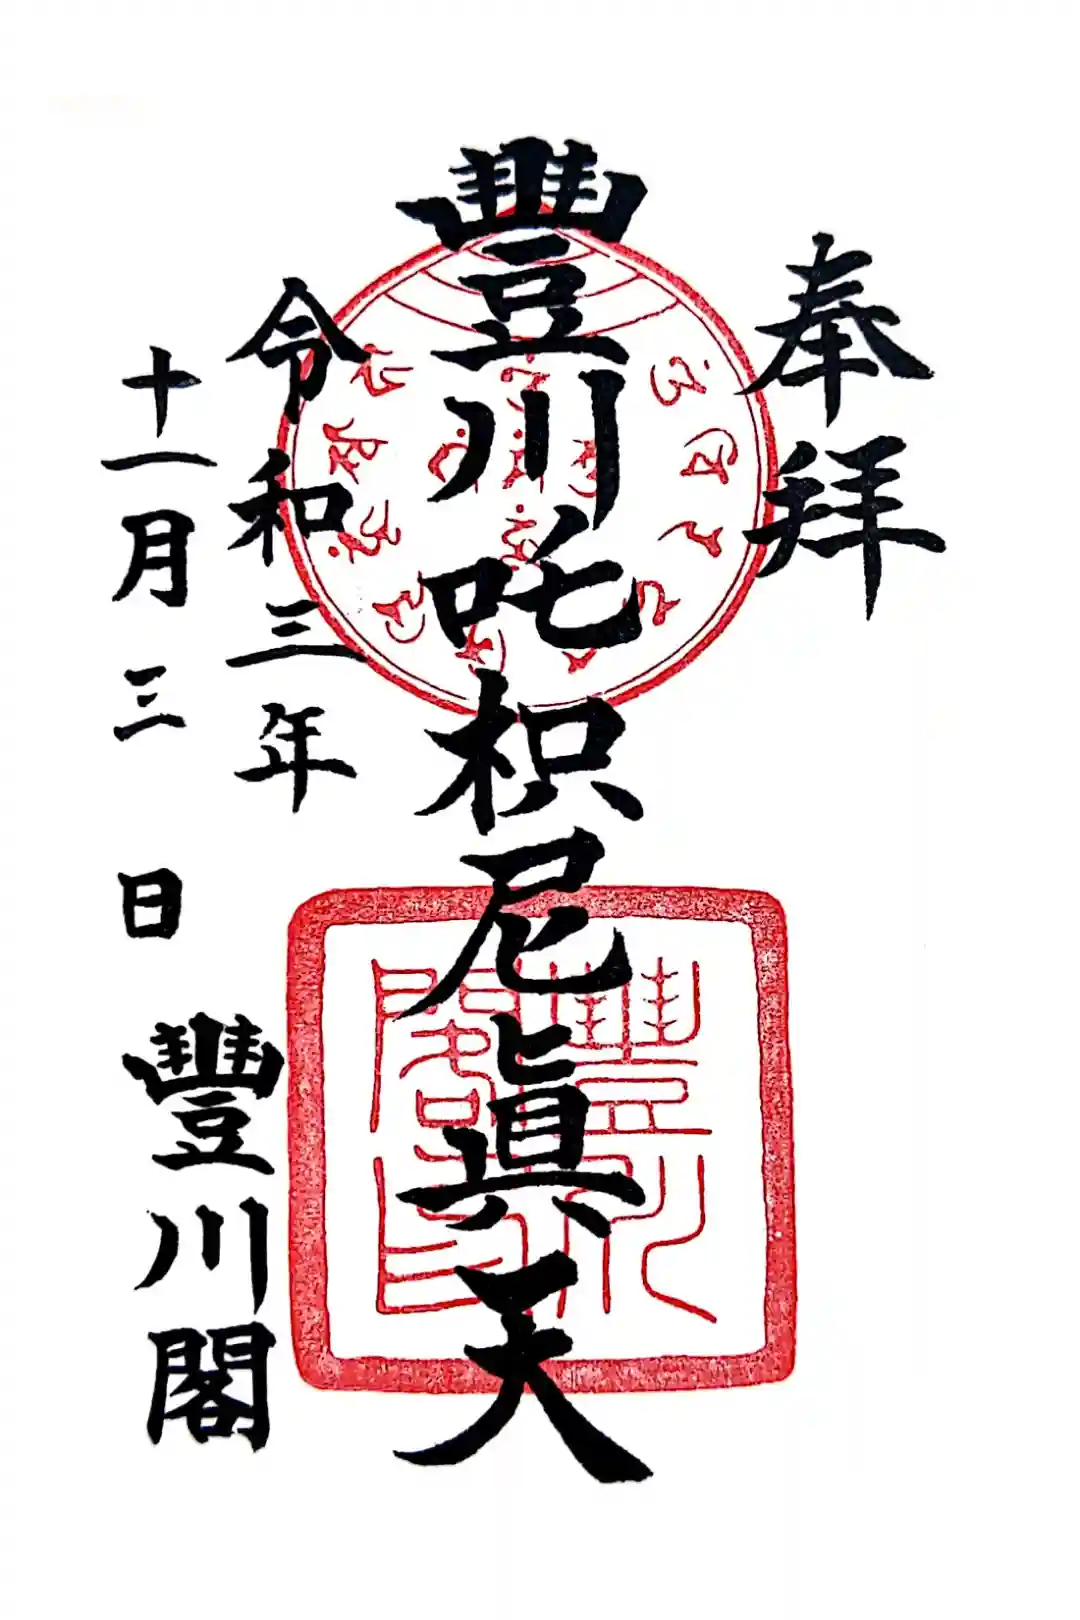 奉拜
豐川吒枳尼眞天
令和三年
十一月三日
豐川閣
豐川閣印